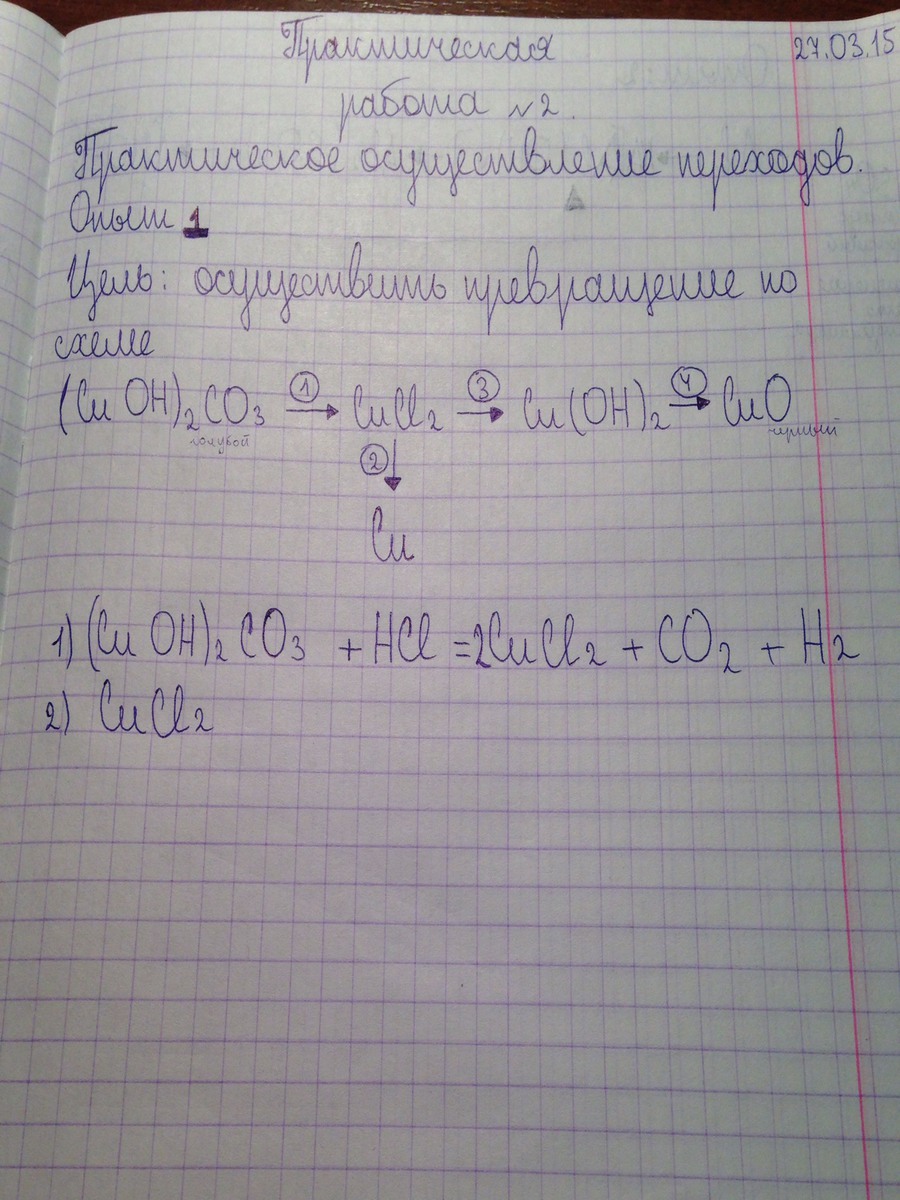 Практическая 27.03.15
работа №2.
Практическое осуществление переходов.
Опыт 1
Цель: осуществить превращение по
схеме
(Cu OH)₂CO₃ ①→ CuCl₂ ③→ Cu(OH)₂ ④→ CuO
голубой черный
②↓
Cu
1) (Cu OH)₂ CO₃ + HCl = 2CuCl₂ + CO₂ + H₂
2) CuCl₂